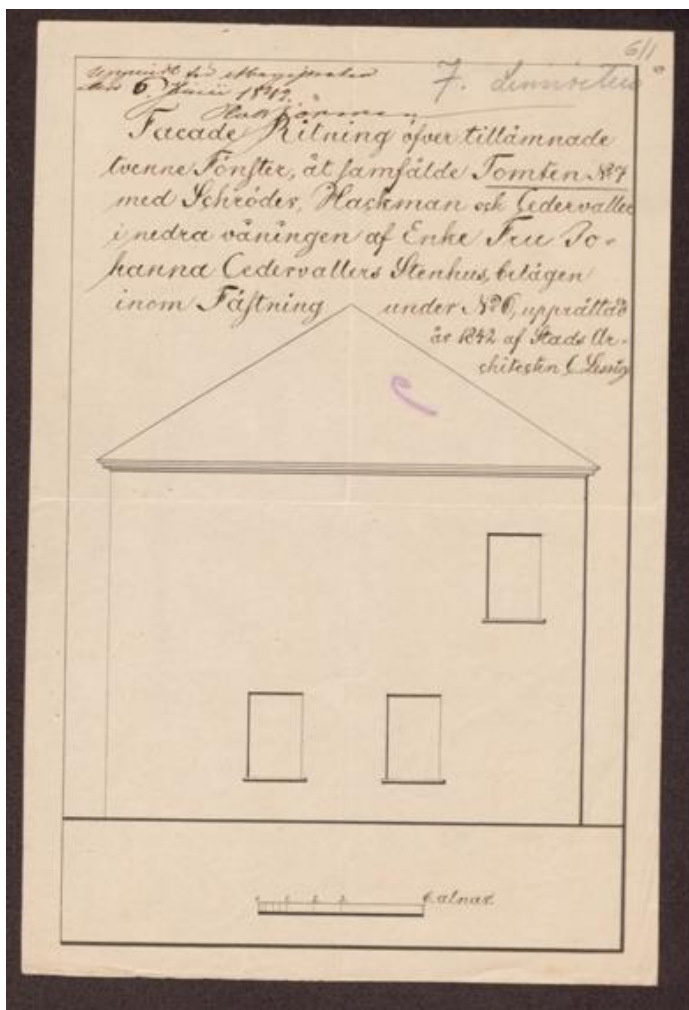 6/1
7. Linnoitus
uppvist för Magistraten
den 6. Junii 1842.
Facade Ritning öfver tillämnade
tvenne Fönster, åt samfälde Tomten No 7
med Schröder, Hackman och Cedervaller
i nedra våningen af Enke Fru Jo-
hanna Cedervallers Stenhus, belägen
inom Fästning under No 6, upprättad
år 1842 af Stads Ar-
chitecten C Leszig
6 alnar.